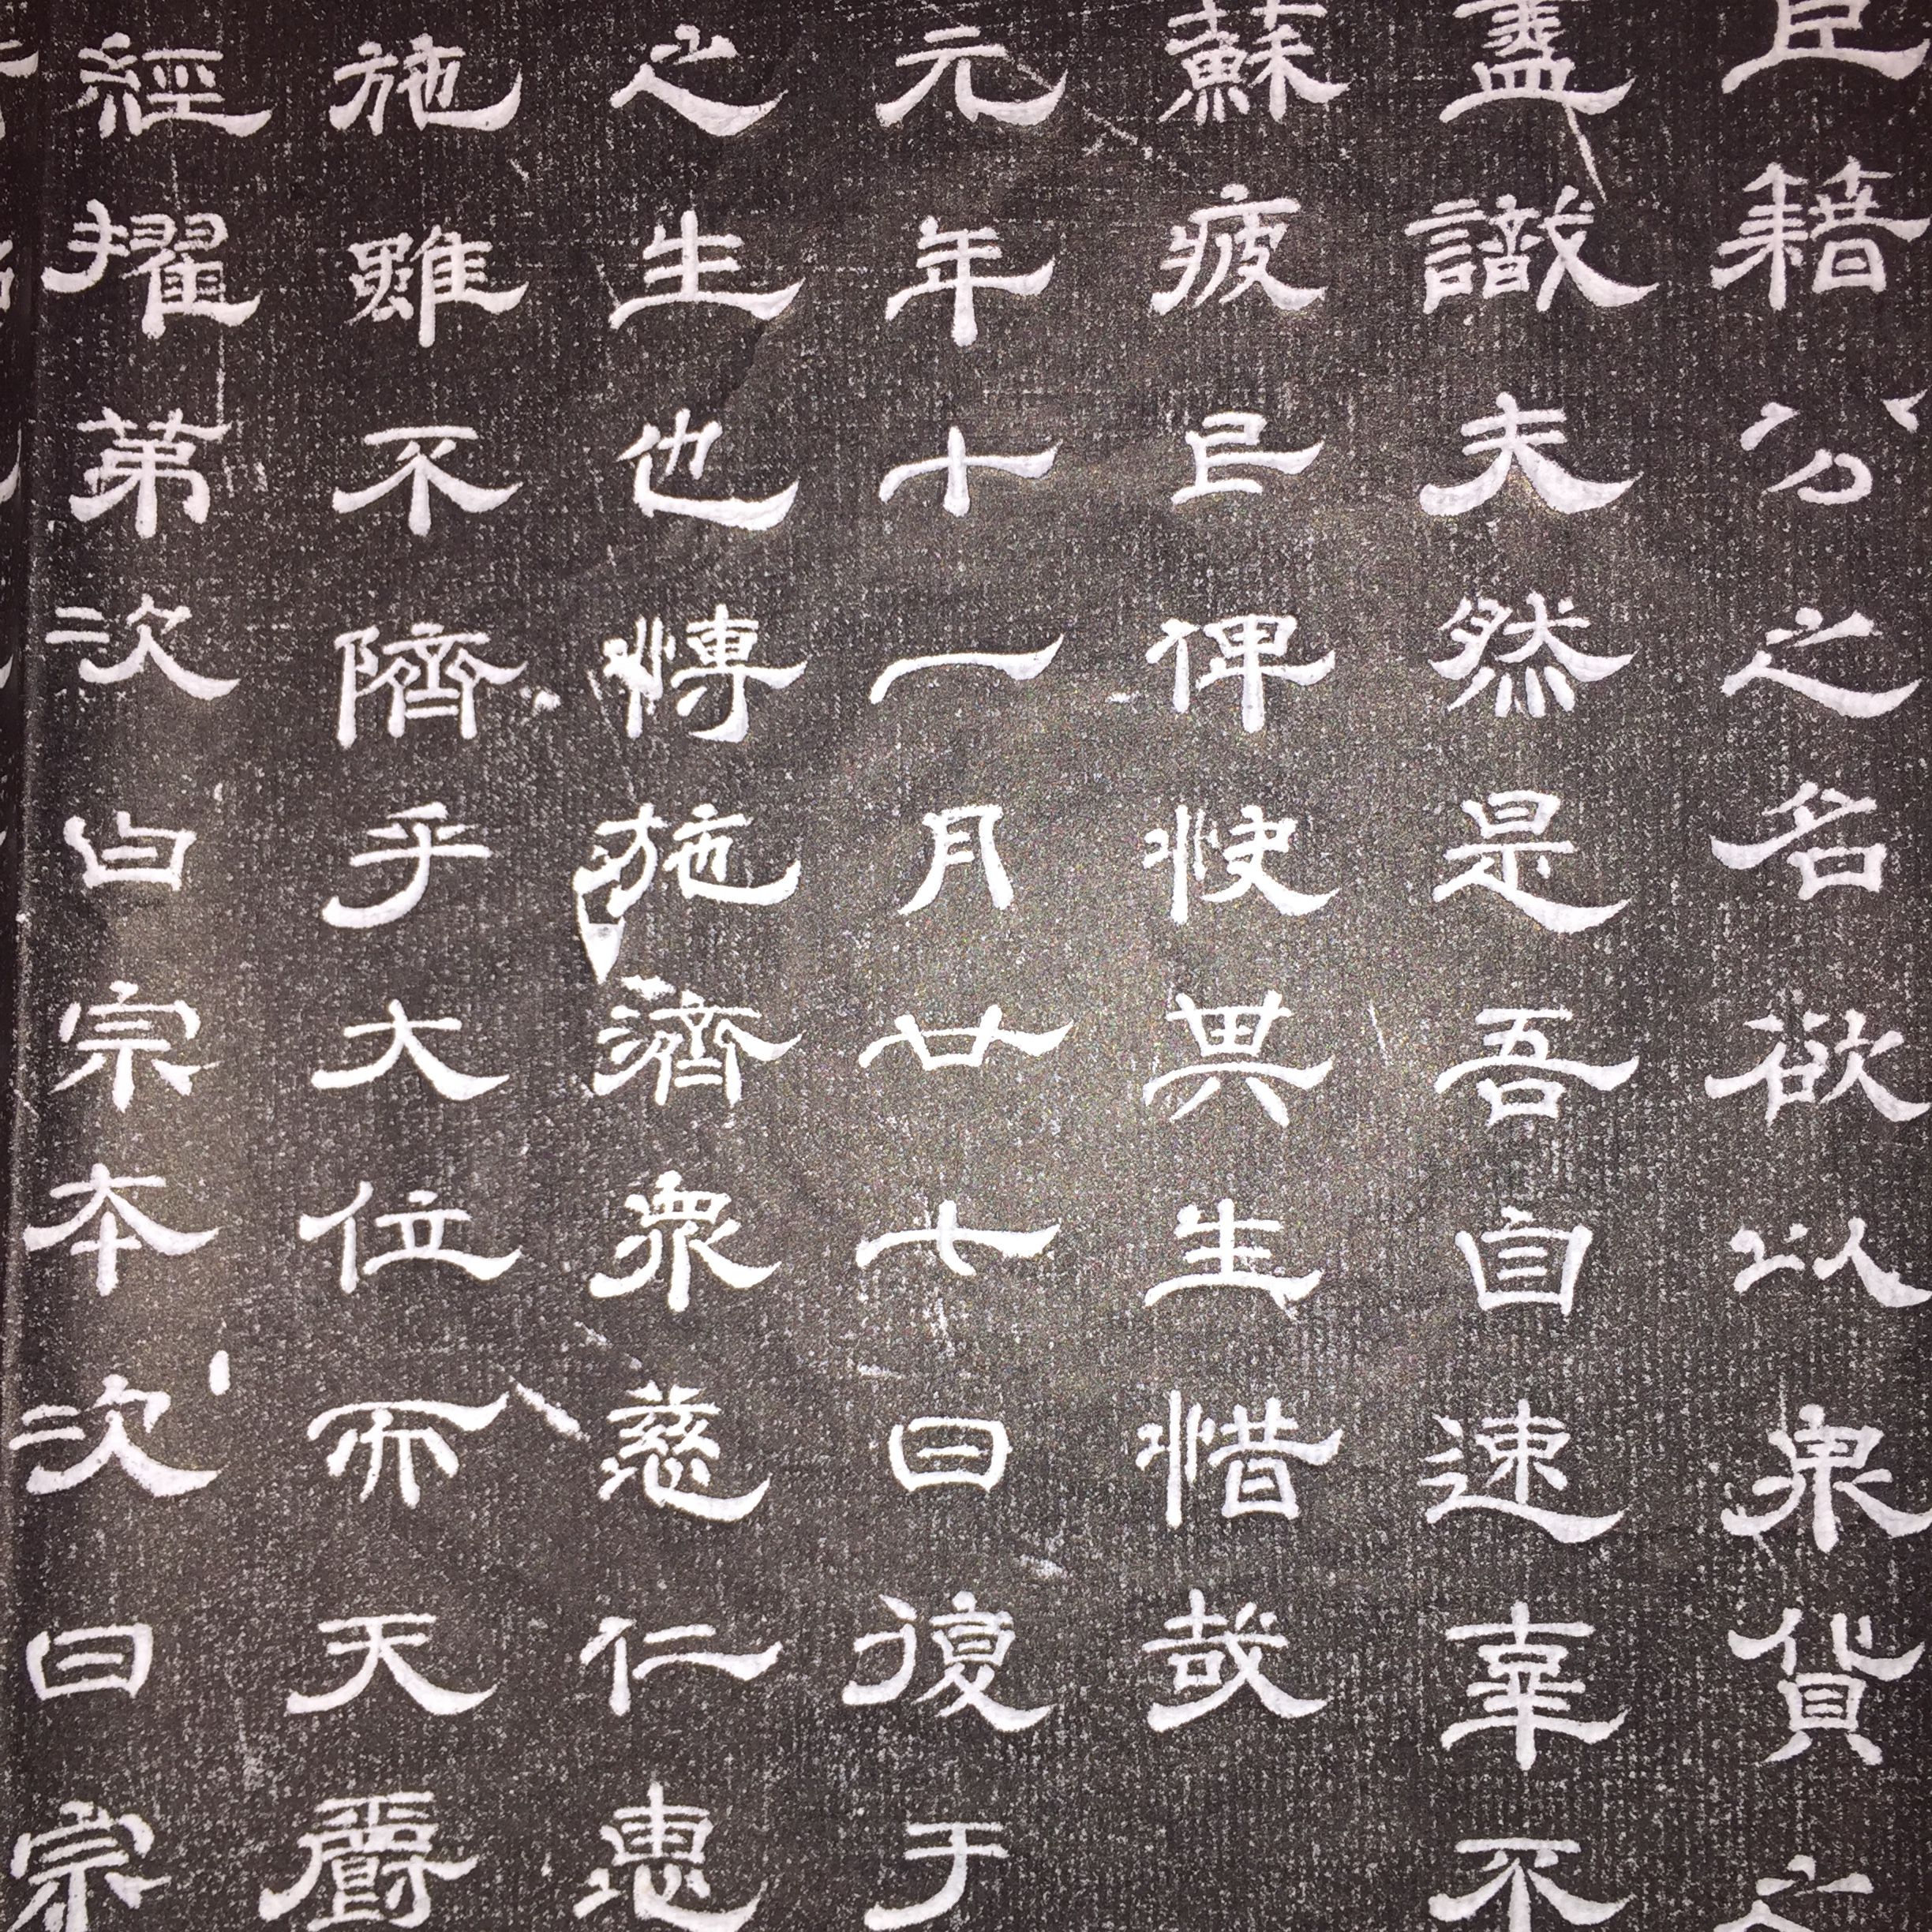 臣籍公之名欲以泉貨之
蓋識夫然是吾自速辜不
蘇疲已俾快異生惜哉
元年十一月廿七日復于
之生也博施濟眾慈仁惠
施雖不隮乎大位而天爵
經擢第次曰宗本次曰宗